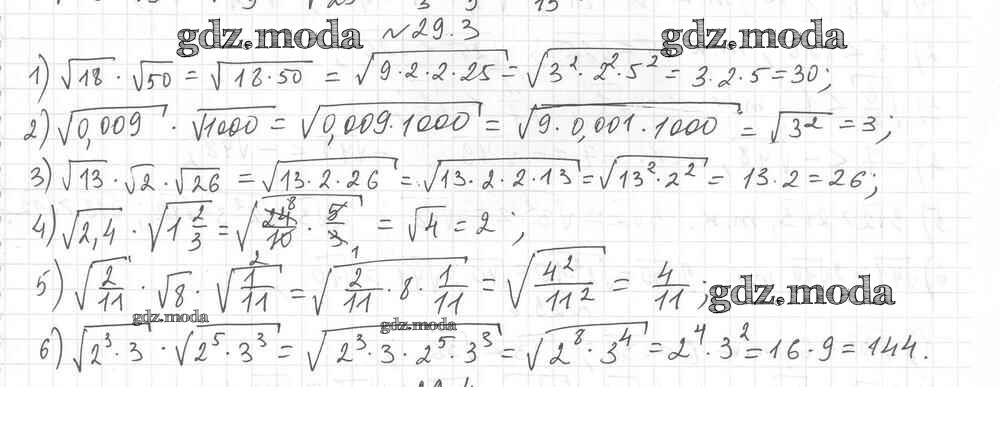 №29.3
gdz.moda gdz.moda
1) √18 · √50 = √(18·50) = √(9·2·2·25) = √(3²·2²·5²) = 3·2·5 = 30;
2) √0,009 · √1000 = √(0,009·1000) = √(9·0,001·1000) = √3² = 3;
3) √13 · √2 · √26 = √(13·2·26) = √(13·2·2·13) = √(13²·2²) = 13·2 = 26;
4) √2,4 · √(1 2/3) = √(24/10 · 5/3) = √4 = 2;
5) √(2/11) · √8 · √(1/11) = √(2/11 · 8 · 1/11) = √(4²/11²) = 4/11;
gdz.moda
gdz.moda gdz.moda
6) √(2³·3) · √(2⁵·3³) = √(2³·3·2⁵·3³) = √(2⁸·3⁴) = 2⁴·3² = 16·9 = 144.